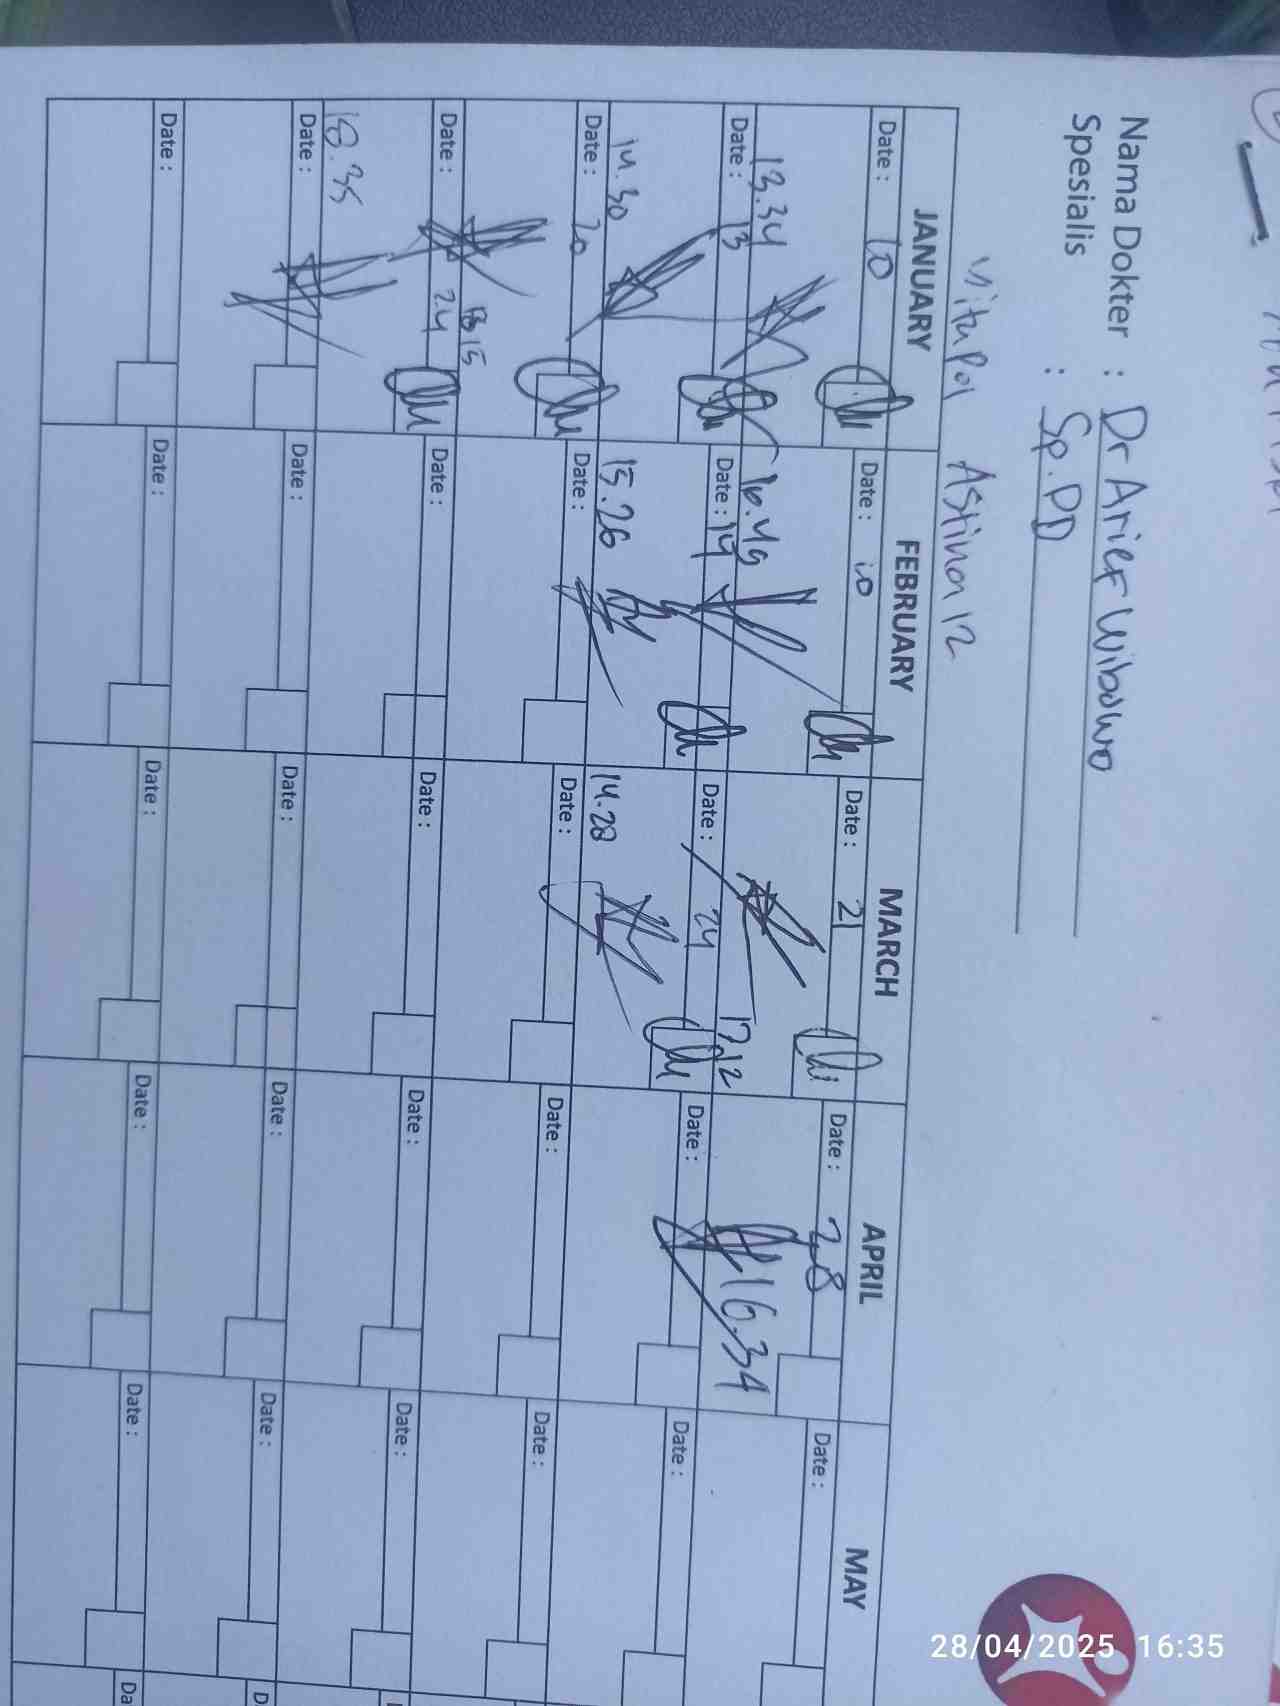 Nama Dokter : Dr Arief Wibowo
Spesialis : Sp.PD
Astina 12
JANUARY FEBRUARY MARCH APRIL MAY
Date : 10 Date : 10 Date : 21 Date : 28 Date :
13.34 16.49 17.12 16.34
Date : 13 Date : 14 Date : 24 Date : Date :
14.30 15.26 14.28
Date : 20 Date : Date : Date : Date :
15
Date : 24 Date : Date : Date : Date :
18.35
Date : Date : Date : Date : Date :
Date : Date : Date : Date : Date :
28/04/2025 16:35